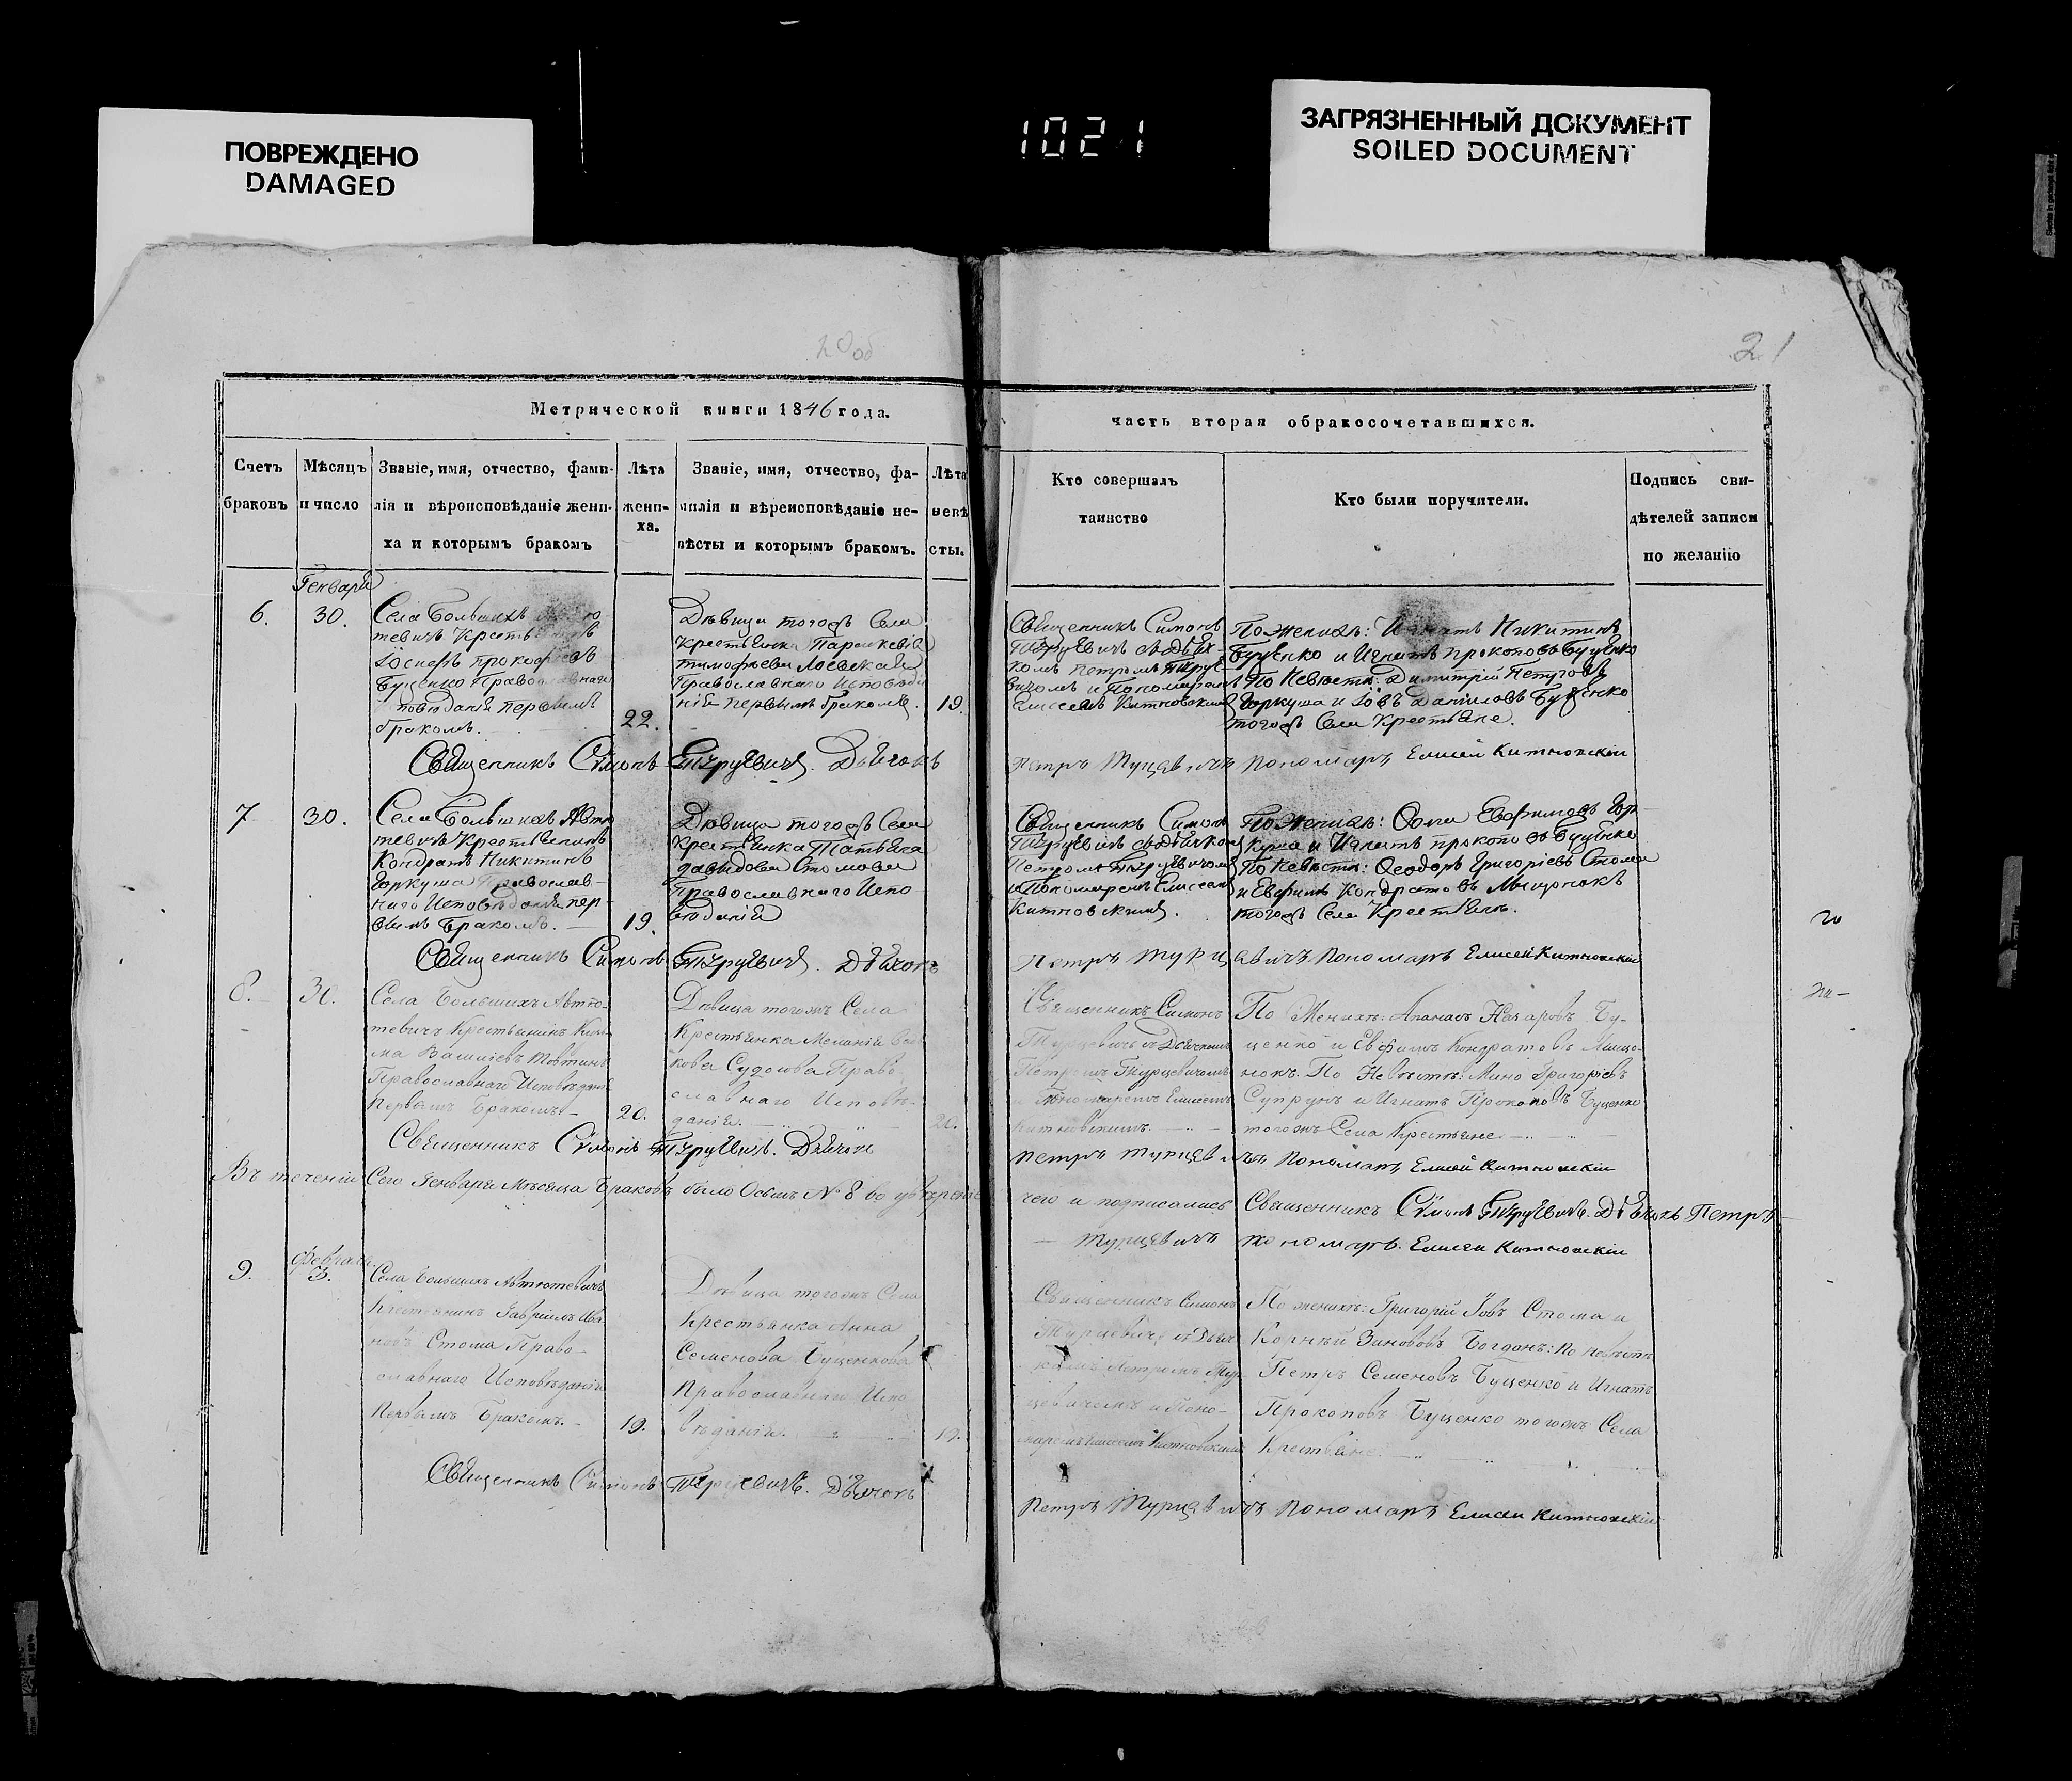 ПОВРЕЖДЕНО
DAMAGED
1021
ЗАГРЯЗНЕННЫЙ ДОКУМЕНТ
SOILED DOCUMENT
20об
21
Метрической книги 1846 года.
часть вторая обракосочетавшихся.
Счетъ браковъ
Мѣсяцъ и число
Званіе, имя, отчество, фами-
лія и вѣроисповѣданіе жени-
ха и которымъ бракомъ
Лѣта
жени-
ха.
Званіе, имя, отчество, фа-
милія и вѣреисповѣданіе не-
вѣсты и которымъ бракомъ.
Лѣта
невѣ
сты.
Кто совершалъ
таинство
Кто были поручители.
Подпись сви-
дѣтелей записи
по желанію
Генваря
6.
30.
Села Большихъ
тевичъ
Іосифъ Прокофіевъ
Буценко Православнаго
повѣданія первымъ
бракомъ.
22.
Дѣвица тогожъ Села
Крестьянка Параскевія
Тимофѣева Лоевская
Православнаго Исповѣда
нія первымъ бракомъ.
19.
Священникъ Симонъ
Турцевичъ съ Дьяч-
комъ Петромъ Турце-
вичомъ и Пономаремъ
Елисеемъ Китновскимъ
По Женихѣ: Игнатъ Никитинъ
Буценко и Игнатъ Прокоповъ Буценко
По Невѣстѣ: Димитрій Петровъ
Горкуша и Іовъ Даниловъ Буценко
тогожъ Села Крестьяне.
Священникъ Симонъ Турцевичъ. Дьячокъ
Петръ Турцевичъ Пономарь Елисей Китновскій
7
30.
Села Большихъ Автю
тевичъ Крестьянинъ
Кондратъ Никитинъ
Горкуша Православ-
наго Исповѣданія пер-
вымъ Бракомъ.
19.
Дѣвица тогожъ Села
Крестьянка Татьяна
Давыдова Стомова
Православнаго Испо
вѣданія
Священникъ Симонъ
Турцевичъ съ Дьячкомъ
Петромъ Турцевичомъ
и Пономаремъ Елисеемъ
Китновскимъ.
По Женихѣ: Ѳома Евфимовъ Гор-
куша и Игнатъ Прокоповъ Буценко
По Невѣстѣ: Ѳеодоръ Григоріевъ Стома
и Евфимъ Кондратовъ Мищонокъ
тогожъ Села Крестьяне.
Священникъ Симонъ Турцевичъ. Дьячокъ
Петръ Турцевичъ Пономарь Елисей Китновскій
8.
30.
Села Большихъ Автю-
тевичъ Крестьянинъ Кузь
ма Василіевъ
Православнаго Исповѣданія
Первымъ Бракомъ
20.
Дѣвица тогожъ Села
Крестьянка Меланія
кова Православнаго Исповѣ-
данія.
20.
Священникъ Симонъ
Турцевичъ съ Дьячкомъ
Петромъ Турцевичомъ
Пономаремъ Елисеемъ
Китновскимъ.
По Женихѣ: Апанасъ Назаровъ Бу-
ценко и Евфимъ Кондратовъ Мищо-
нокъ. По Невѣстѣ: Мина Григоріевъ
Супрунъ и Игнатъ Прокоповъ Буценко
тогожъ Села Крестьяне
Священникъ Симонъ Турцевичъ. Дьячокъ
Петръ Турцевичъ Пономарь Елисей Китновскій
Въ теченіи Сего Генваря Мѣсяца Браковъ было Осьмъ № 8 во увѣреніе
чего и подписались Священникъ Симонъ Турцевичъ. Дьячокъ Петръ
Турцевичъ пономарь Елисей Китновскій
Февраля
9.
3.
Села Большихъ Автютевичъ
Крестьянинъ Гавріилъ Ива
новъ Стома Право-
славнаго Исповѣданія
Первымъ Бракомъ.
19.
Дѣвица тогожъ Села
Крестьянка Анна
Семенова Буценкова
Православнаго Испо
вѣданія.
19.
Священникъ Симонъ
Турцевичъ съ Дьяч
комъ Петромъ Тур
цевичомъ и Поно-
маремъ Елисеемъ Китновскимъ
По женихѣ: Григорій Іовъ Стома и
Корнѣй Зинововъ Богданъ: По невѣстѣ
Петръ Семеновъ Буценко и Игнатъ
Прокоповъ Буценко тогожъ Села
Крестьяне
Священникъ Симонъ Турцевичъ. Дьячокъ
Петръ Турцевичъ Пономарь Елисей Китновскій